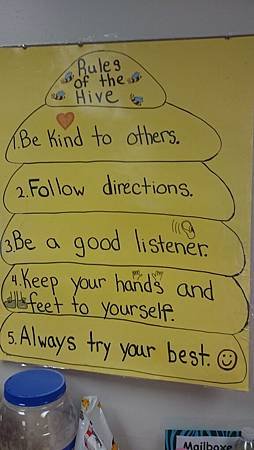 Rules
of the
Hive
1. Be Kind to others.
2. Follow directions.
3. Be a good listener.
4. Keep your hands and
feet to yourself.
5. Always try your best.
Mailboxe